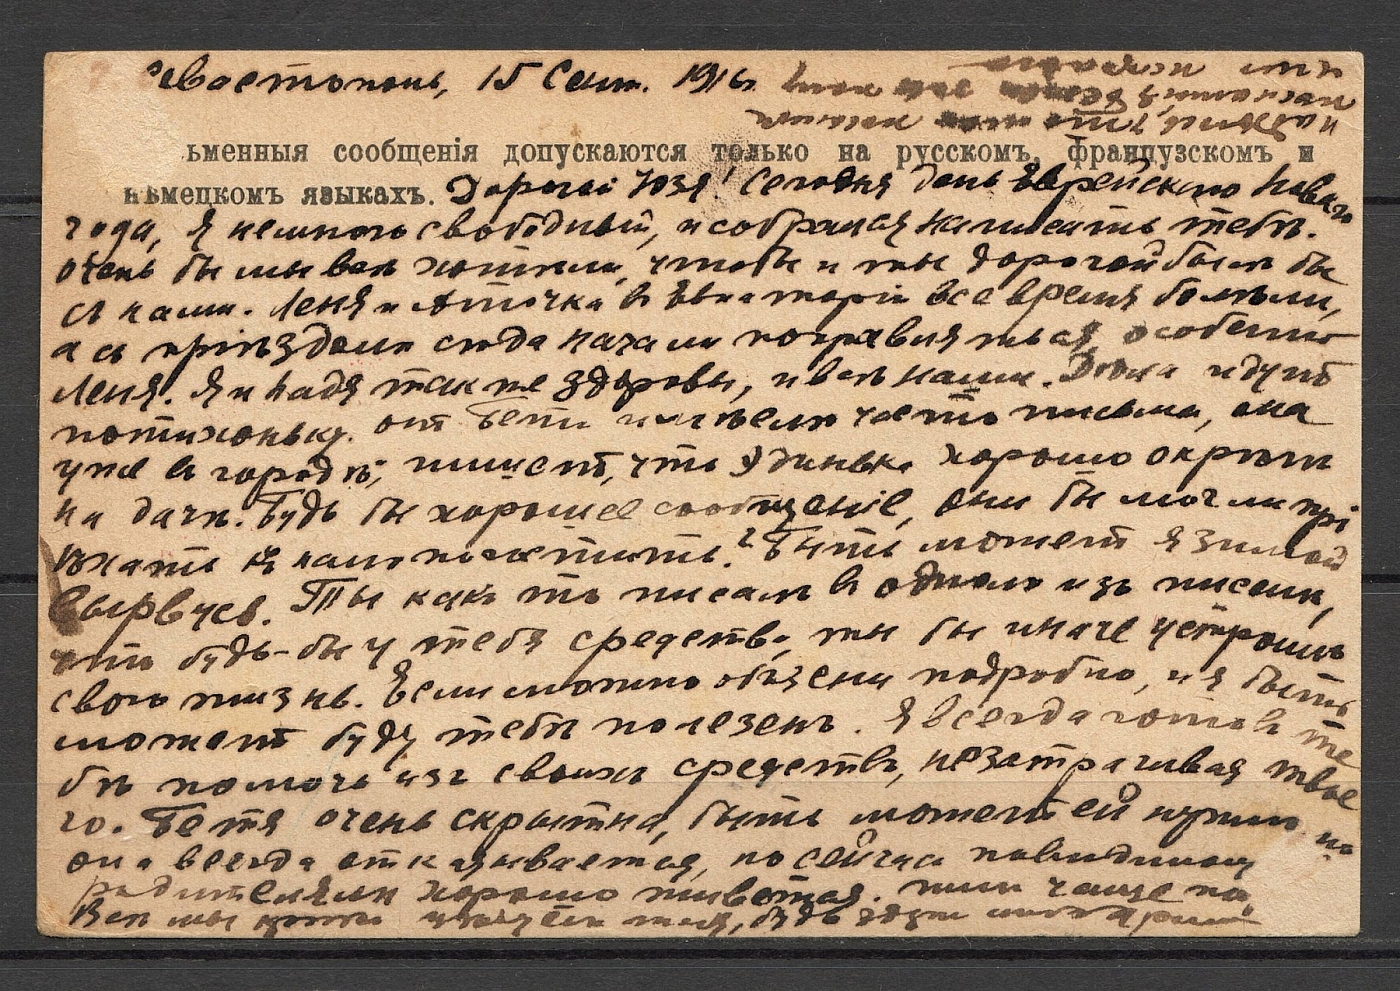 Севастополь, 15 Сент. 1916 г.
ьменныя сообщенія допускаются только на русскомъ, французскомъ и
нѣмецкомъ языкахъ. Дорогой Юзя! Сегодня день Еврейскаго Новаго
года, я немного свободный, и собрался написать тебѣ.
Очень бы мы всѣ хотѣли, чтобы и ты дорогой былъ бы
съ нами. Леня и Аточка въ Евпаторіи все время болѣли,
а съ пріѣздомъ сюда начали поправляться, особенно
Леня. Я и Надя также здоровы, и всѣ наши. Дѣла идутъ
потихоньку. От Бети имѣемъ часто письма, она
уже въ городѣ, пишетъ, что Эдинька хорошо окрѣпъ
на дачѣ. Будь бы хорошее сообщеніе, они бы могли прі
ѣхать къ намъ погостить. Быть можетъ я зимой
вырвусь. Ты какъ то писалъ въ одномъ изъ писемъ,
что будь-бы у тебя средства, ты бы иначе устроилъ
свою жизнь. Если можно объясни подробно, и я быть
можетъ буду тебѣ полезенъ. Я всегда готовъ те
бѣ помочь изъ своихъ средствъ, не затрагивая твое
го. Бетя очень скрытна, быть можетъ ей нужно, но
она всегда отказывается, но сейчасъ повидимому
родителямъ хорошо живется. пиши чаще
Всѣ мы крѣпко цѣлуемъ тебя, будь здоровъ